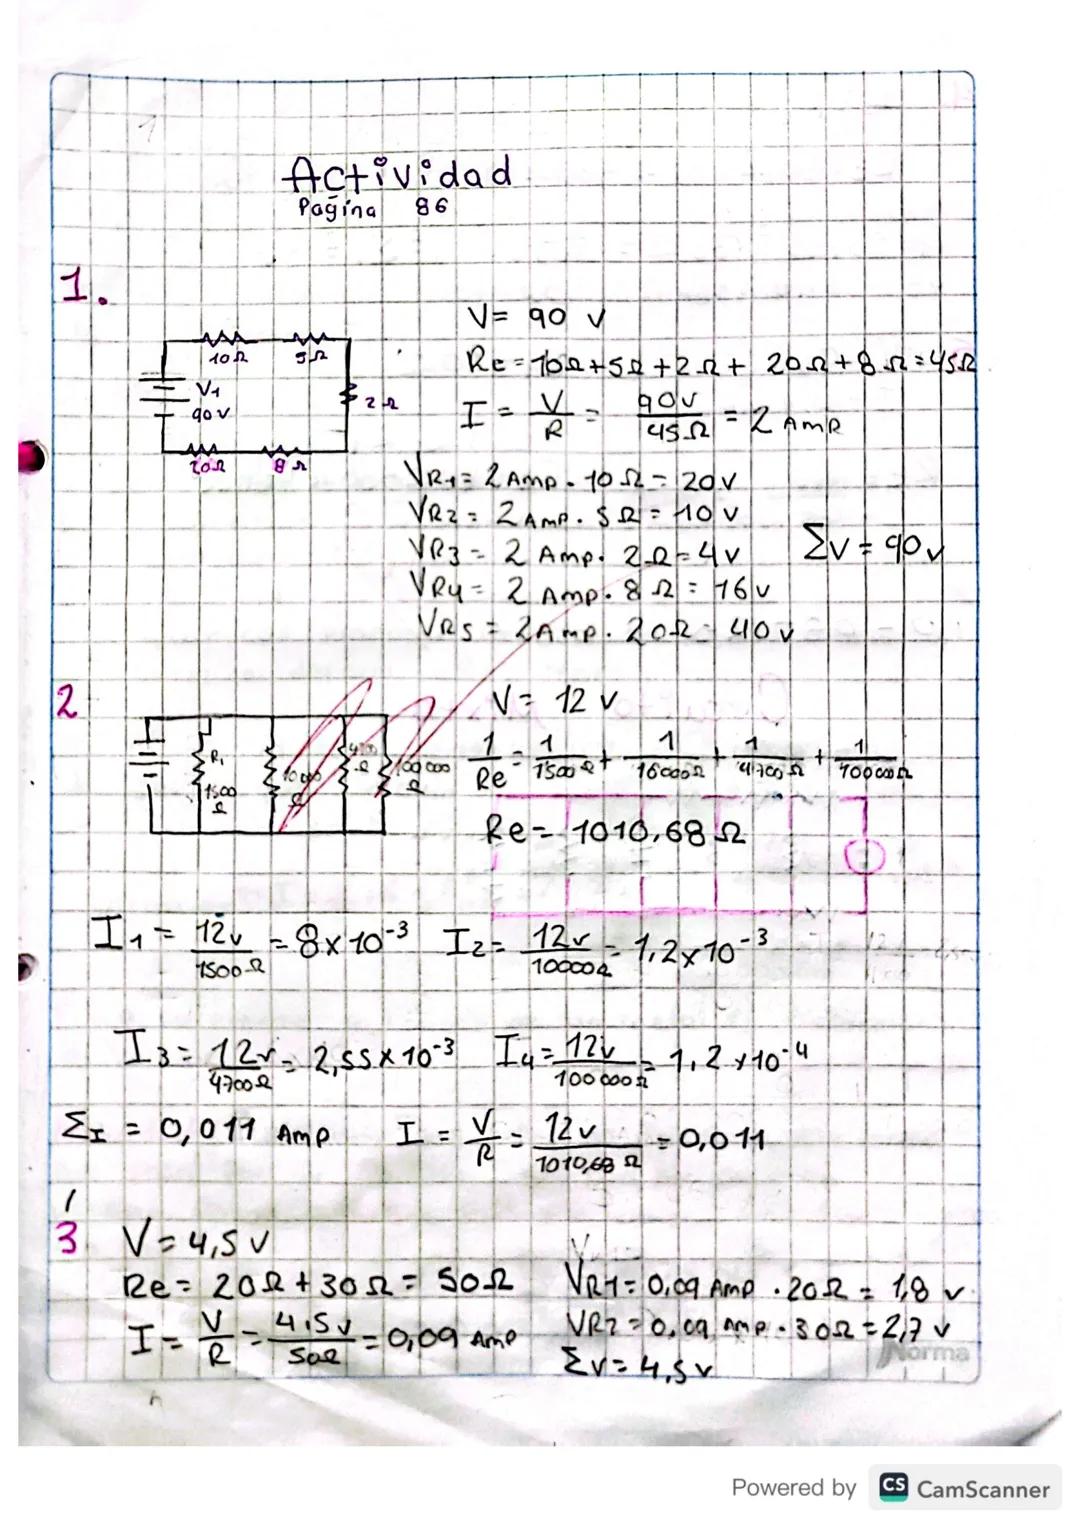 Actividad
Pagina 86
1.
10Ω 5Ω
V1
90 v
2Ω
20Ω 8Ω
V= 90 v
Re = 10Ω+5Ω+2Ω+ 20Ω+8Ω=45Ω
I = V/R = 90v/45Ω = 2 AMP
VR1= 2 Amp. 10Ω= 20v
VR2= 2 AMP. 5Ω= 10 v
VR3= 2 Amp. 2Ω=4v
ΣV= 90v
VR4= 2 Amp. 8Ω= 16v
VR5= 2Amp. 20Ω= 40 v
2
R1
1500
Ω
10000
Ω
Ω
100 000
Ω
V= 12 v
1/Re = 1/1500Ω + 1/10000Ω + 1/4700Ω + 1/100000Ω
Re= 1010,68Ω
I1= 12v/1500Ω = 8x10-3 I2= 12v/10000Ω = 1,2x10-3
I3= 12v/4700Ω = 2,55x10-3 I4= 12v/100 000Ω = 1,2x10-4
ΣI = 0,011 Amp I = V/R = 12v/1010,68 Ω = 0,011
3 V=4,5 v
Re= 20Ω+30Ω= 50Ω
I= V/R = 4.5v/50Ω = 0,09 Amp
VR1=0,09 Amp .20Ω= 1,8 v
VR2=0,09 Amp.30Ω=2,7 v
Σv=4,5v
Norma
Powered by CS CamScanner